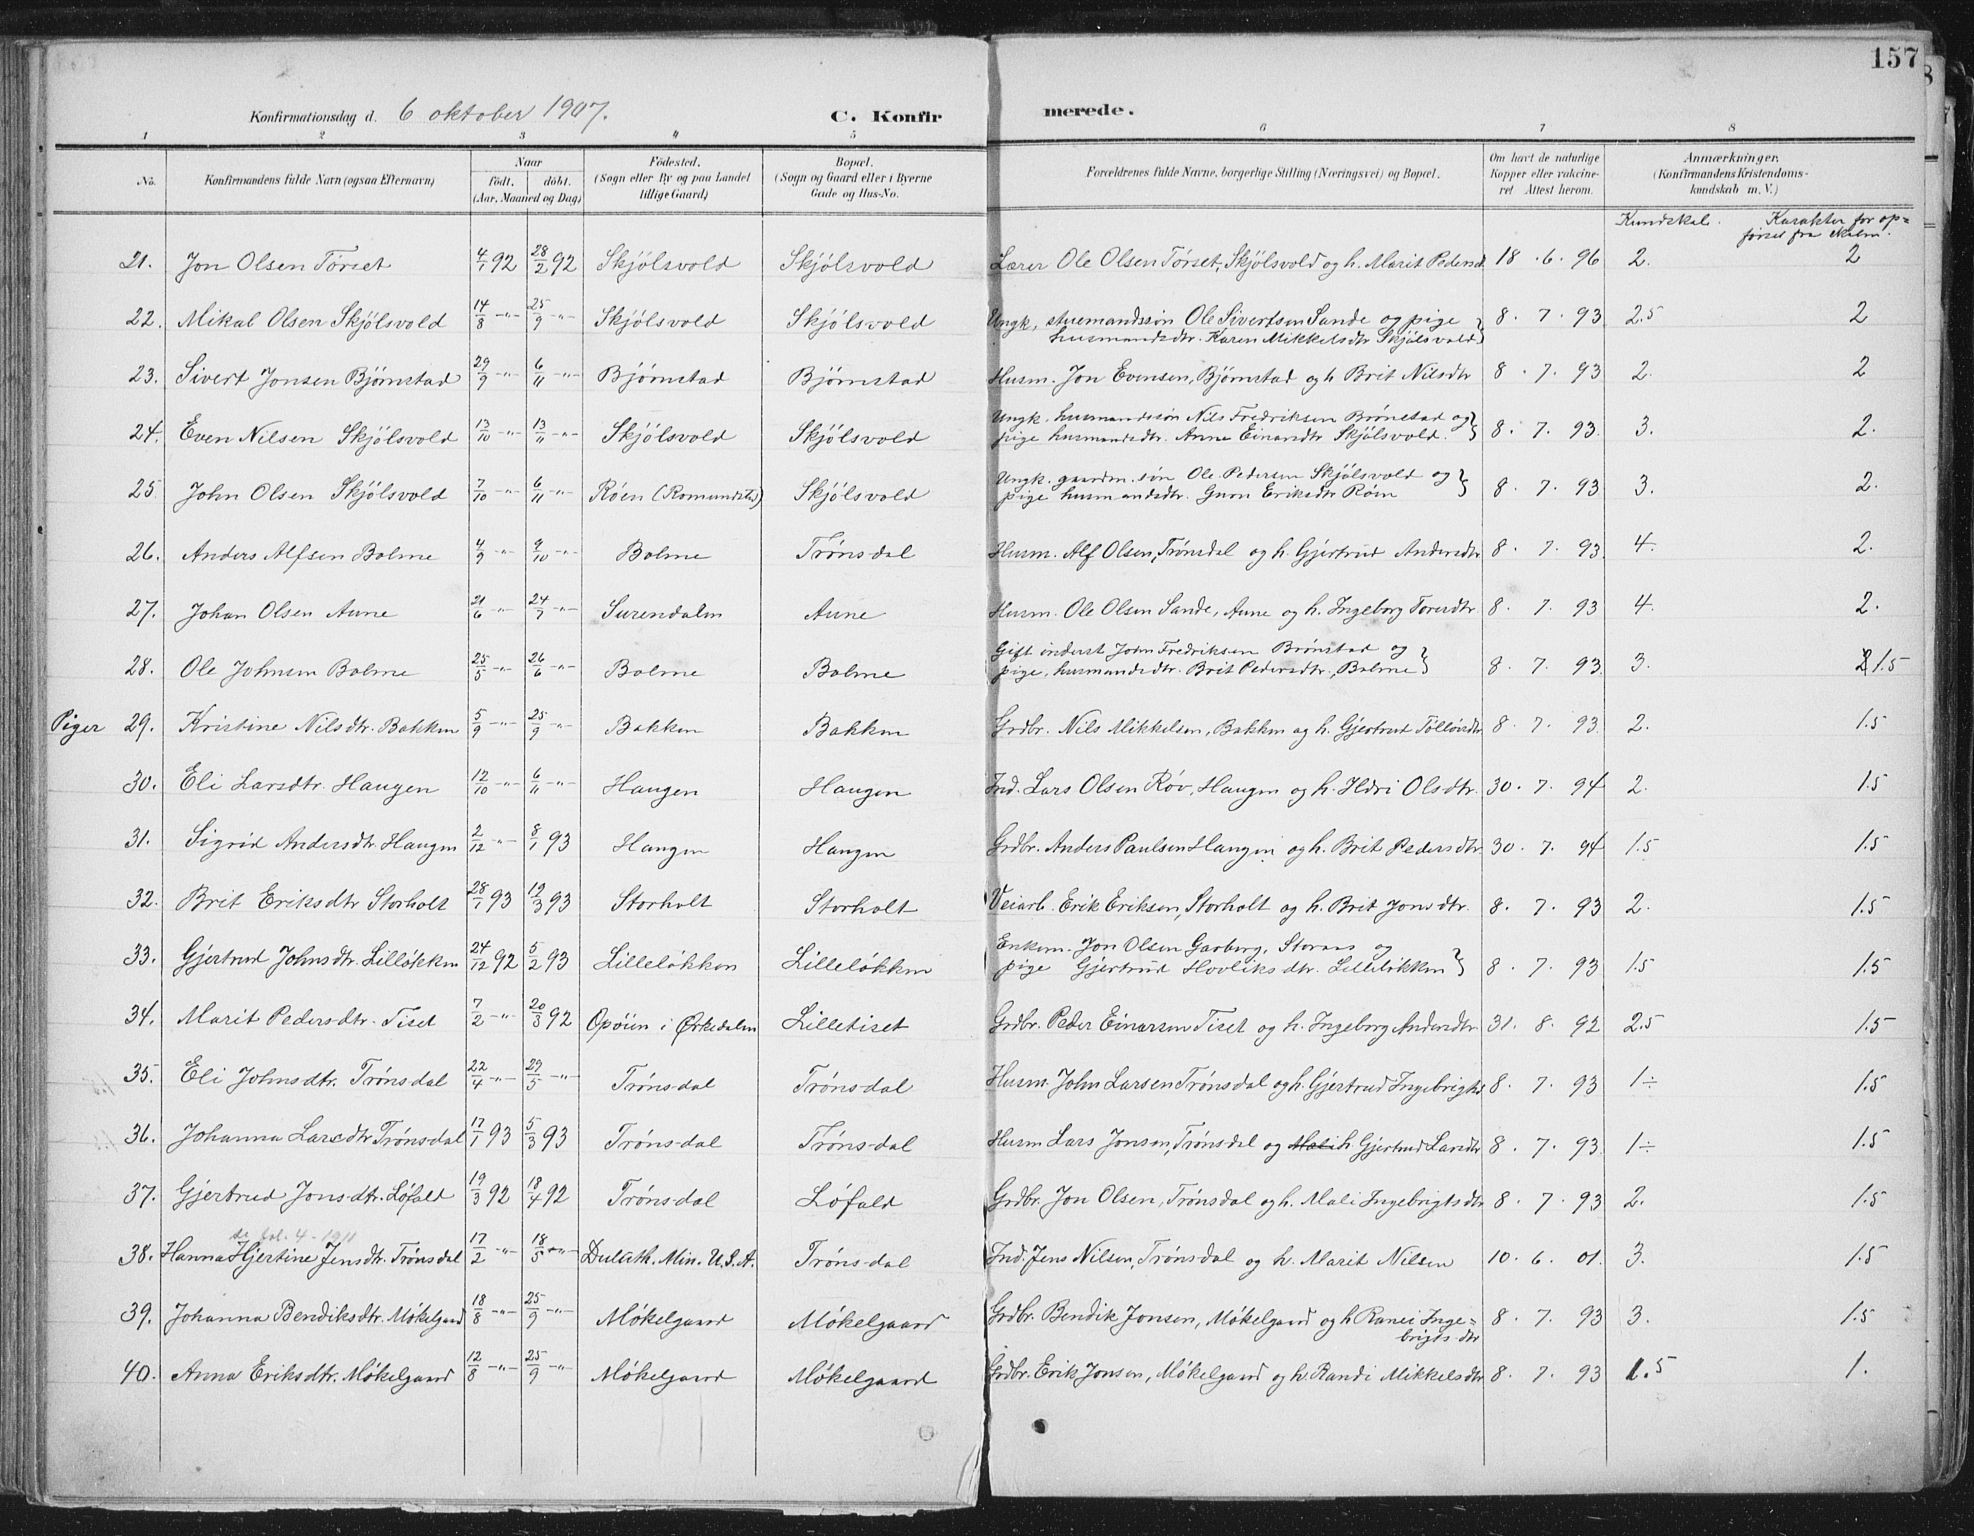 157
Konfirmationsdag d. 6 oktober 1907. C. Konfirmerede.
1 2 3 4 5 6 7 8
No. Konfirmandens fulde Navn (ogsaa Efternavn) Naar født. døbt. (Aar, Maaned og Dag) Fødested. (Sogn eller By og paa Landet tillige Gaard) Bopæl. (Sogn og Gaard eller i Byerne Gade og Hus-No. Forældrenes fulde Navne, borgerlige Stilling (Næringsvei) og Bopæl. Om havt de naturlige Kopper eller vakcineret Attest herom. Anmærkninger. (Konfirmandens Kristendomskundskab m. V.)
Kundskab. Karakter for opførsel fra skolen.
21. Jon Olsen Tørset 4/1 92 28/2 92 Skjölsvold Skjölsvold Lærer Ole Olsen Tørset, Skjölsvold og h. Marit Pedersd 18 . 6 . 96 2. 2
22. Mikal Olsen Skjölsvold 14/8 -"- 25/9 -"- Skjölsvold Skjölsvold Ungk, stuemandssøn Ole Sivertsen Sande og pige
husmandsdtr. Karen Mikkelsdtr Skjölsvold} 8 . 7 . 93 2.5 2
23. Sivert Jonsen Bjørnstad 29/9 -"- 6/11 -"- Bjørnstad Bjørnstad Husm. Jon Evensen, Bjørnstad og h Brit Nilsdtr 8 . 7 . 93 2. 2
24. Even Nilsen Skjölsvold 13/10 -"- 13/11 -"- Skjölsvold Skjölsvold Ungk. husmandssøn Nils Fredriksen Brønstad og
pige husmandsdtr. Anne Einarsdtr Skjölsvold.} 8. 7. 93. 3. 2.
25. John Olsen Skjölsvold 7/10 -"- 6/11 -"- Røen (Romundst) Skjölsvold Ungk. gaardm. søn Ole Pedersen Skjölsvold og
pige husmandsdtr. Guon Eriksdtr Røen} 8. 7. 93 3. 2.
26. Anders Alfsen Bolme 4/9 -"- 9/10 -"- Bolme Trønsdal Husm. Alf Olsen, Trønsdal og h. Gjertrud Andersdtr 8. 7. 93. 4. 2.
27. Johan Olsen Aune 21/6 -"- 24/7 -"- Surendalen Aune Husm. Ole Olsen Sande, Aune og h. Ingeborg Toresdtr 8. 7. 93 4. 2.
28. Ole Johnsen Bolme 25/5 -"- 26/6 -"- Bolme Bolme Gift inderst John Fredriksen Brønstad og
pige, husmandsdtr. Brit Pedersdtr., Bolme} 8. 7. 93. 3. 1.5
Piger 29. Kristine Nilsdtr. Bakken 5/9 -"- 25/9 -"- Bakken Bakken Grdbr. Nils Mikkelsen, Bakken og h. Gjertrud Tölløvsdtr 8. 7. 93. 2. 1.5
30. Eli Larsdtr. Haugen 12/10 -"- 6/11 -"- Haugen Haugen Ind. Lars Olsen Røv, Haugen og h. Ildri Olsdtr. 30. 7. 94 2. 1.5
31. Sigrid Andersdtr. Haugen 2/12 -"- 8/1 93 Haugen Haugen Grdbr. Anders Paulsen Haugen og h. Brit Pedersdtr 30. 7. 94 1.5 1.5
32. Brit Eriksdtr Storholt 28/1 93 19/3 93 Storholt Storholt Veiarb. Erik Eriksen, Storholt og h. Brit Jonsdtr. 8. 7. 93 2. 1.5
33. Gjertrud Johnsdtr. Lilløkken 24/12 92 5/2 93 Lilleløkken Lilleløkken Enkem. Jon Olsen Garberg, Storaas og
pige Gjertrud Hovliksdtr. Lilleløkken} 8. 7. 93 1.5 1.5
34. Marit Pedersdtr. Tiset 7/2 -"- 20/3 92 Opöien i Ørkedalen Lilletiset Grdbr. Peder Einarsen Tiset og h. Ingeborg Andersdtr. 31. 8. 92 2.5 1.5
35. Eli Johnsdtr. Trønsdal 22/4 -"- 29/5 -"- Trønsdal Trønsdal Husm. John Larsen Trønsdal og h. Gjertrud Ingebrigts 8. 7. 93 1÷ 1.5
36. Johanna Larsdtr Trønsdal 17/1 93 5/3 93 Trønsdal Trønsdal Husm Lars Jonsen, Trønsdal og Mali h. Gjertrud Larsdtr 8. 7. 93. 1÷ 1.5
37. Gjertrud Jonsdtr. Løfald 19/3 92 18/4 92 Trønsdal Løfald Grdbr. Jon Olsen, Trønsdal og h. Mali Ingebrigtsdtr 8. 7. 93 2. 1.5
4 - 1911
38. Hanna Hjertine Jensdtr. Trønsdal 17/2 -"- 18/5 -"- Duluth. Min. U.S.A. Trønsdal Ind. Jens Nilsen, Trønsdal og h. Marit Nilsen 10. 6. 01. 3. 1.5
39. Johanna Bendiksdtr. Møkelgaard 18/8 -"- 25/9 -"- Møkelgaard Møkelgaard Grdbr. Bendik Jonsen, Møkelgaard og h Ranei Inge=
brigts dtr 8. 7. 93 3. 1.5
40. Anna Eriksdtr. Møkelgaard 12/8 -"- 25/9 -"- Møkelgaard Møkelgaard Grdbr. Erik Jonsen, Møkelgaard og h. Randi Mikkelsdtr 8. 7. 93 1.5 1.